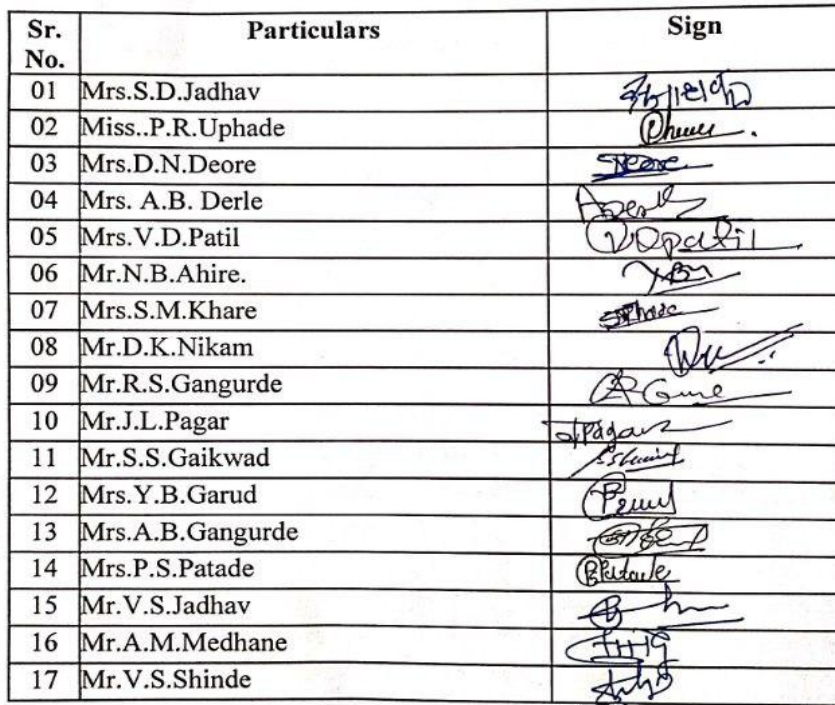 Sr. No. Particulars Sign
01 Mrs.S.D.Jadhav
02 Miss..P.R.Uphade
03 Mrs.D.N.Deore Deore
04 Mrs. A.B. Derle
05 Mrs.V.D.Patil VDpatil
06 Mr.N.B.Ahire.
07 Mrs.S.M.Khare
08 Mr.D.K.Nikam
09 Mr.R.S.Gangurde
10 Mr.J.L.Pagar
11 Mr.S.S.Gaikwad
12 Mrs.Y.B.Garud
13 Mrs.A.B.Gangurde
14 Mrs.P.S.Patade
15 Mr.V.S.Jadhav
16 Mr.A.M.Medhane
17 Mr.V.S.Shinde